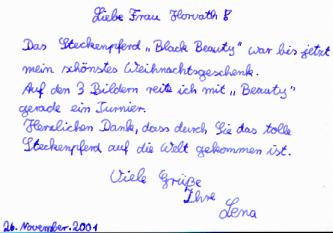 Liebe Frau Horvath!
Das Steckenpferd „Black Beauty" war bis jetzt
mein schönstes Weihnachtsgeschenk.
Auf den 3 Bildern reite ich mit „Beauty"
gerade ein Turnier.
Herzlichen Dank, dass durch Sie das tolle
Steckenpferd auf die Welt gekommen ist.
Viele Grüße
Ihre
Lena
26. November. 2001